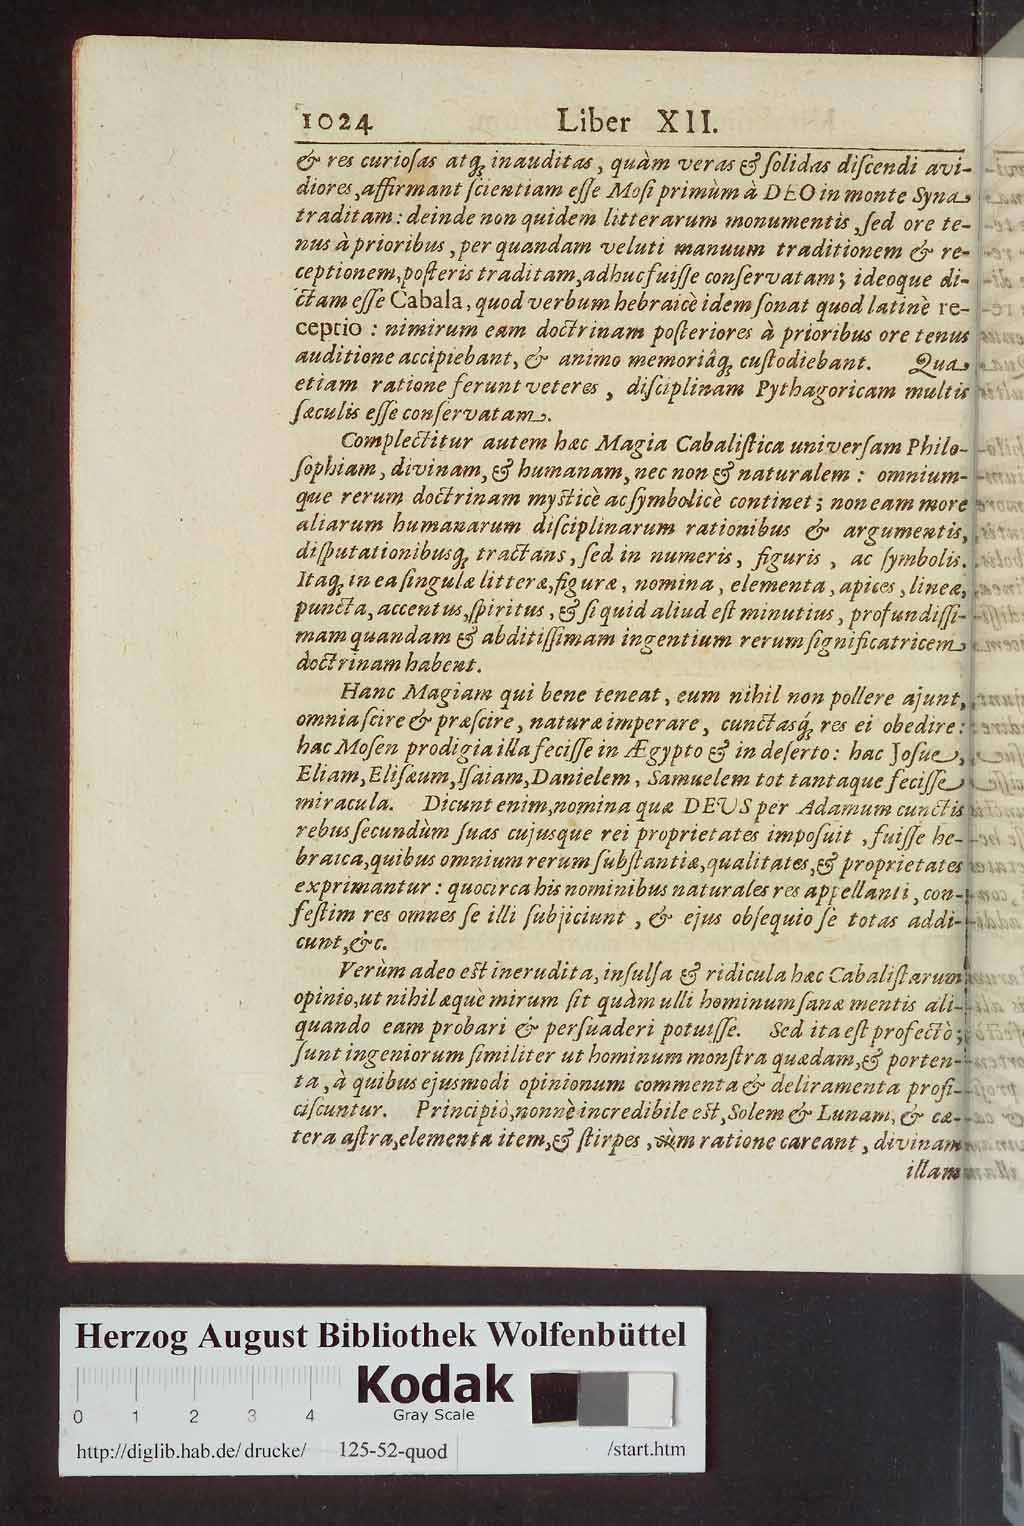 1024 Liber XII.
& res curiosas atq; inauditas, quàm veras & solidas discendi avi-
diores, affirmant scientiam esse Mosi primùm à DEO in monte Syna
traditam: deinde non quidem litterarum monumentis, sed ore te-
nus à prioribus, per quandam veluti manuum traditionem & re-
ceptionem, posteris traditam, adhuc fuisse conservatam; ideoque di-
ctam esse Cabala, quod verbum hebraicè idem sonat quod latinè re-
ceptio: nimirum eam doctrinam posteriores à prioribus ore tenus
auditione accipiebant, & animo memoriâq; custodiebant. Qua
etiam ratione ferunt veteres, disciplinam Pythagoricam multis
sæculis esse conservatam.
Complectitur autem hæc Magia Cabalistica universam Philo-
sophiam, divinam, & humanam, nec non & naturalem: omnium-
que rerum doctrinam mysticè ac symbolicè continet; non eam more
aliarum humanarum disciplinarum rationibus & argumentis,
disputationibusq; tractans, sed in numeris, figuris, ac symbolis.
Itaq; in ea singulæ litteræ, figuræ, nomina, elementa, apices, lineæ,
puncta, accentus, spiritus, & si quid aliud est minutius, profundissi-
mam quandam & abditissimam ingentium rerum significatricem
doctrinam habent.
Hanc Magiam qui bene teneat, eum nihil non pollere ajunt,
omnia scire & præscire, naturæ imperare, cunctasq́; res ei obedire:
hac Mosen prodigia illa fecisse in Ægypto & in deserto: hac Josue,
Eliam, Elisæum, Isaiam, Danielem, Samuelem tot tantaque fecisse
miracula. Dicunt enim, nomina quæ DEUS per Adamum cunctis
rebus secundùm suas cujusque rei proprietates imposuit, fuisse he-
braica, quibus omnium rerum substantiæ, qualitates, & proprietates
exprimantur: quocirca his nominibus naturales res appellanti, con-
festim res omnes se illi subjiciunt, & ejus obsequio se totas addi-
cunt, &c.
Verùm adeo est inerudita, insulsa & ridicula hæc Cabalistarum
opinio, ut nihil æquè mirum sit quàm ulli hominum sanæ mentis ali-
quando eam probari & persuaderi potuisse. Sed ita est profectò;
sunt ingeniorum similiter ut hominum monstra quædam, & porten-
ta, à quibus ejusmodi opinionum commenta & deliramenta profi-
ciscuntur. Principiò, nonnè incredibile est, Solem & Lunam, & cæ-
tera astra, elementa item, & stirpes, cùm ratione careant, divinam
illam
Herzog August Bibliothek Wolfenbüttel
Kodak
0 1 2 3 4 Gray Scale
http://diglib.hab.de/drucke/ 125-52-quod /start.htm